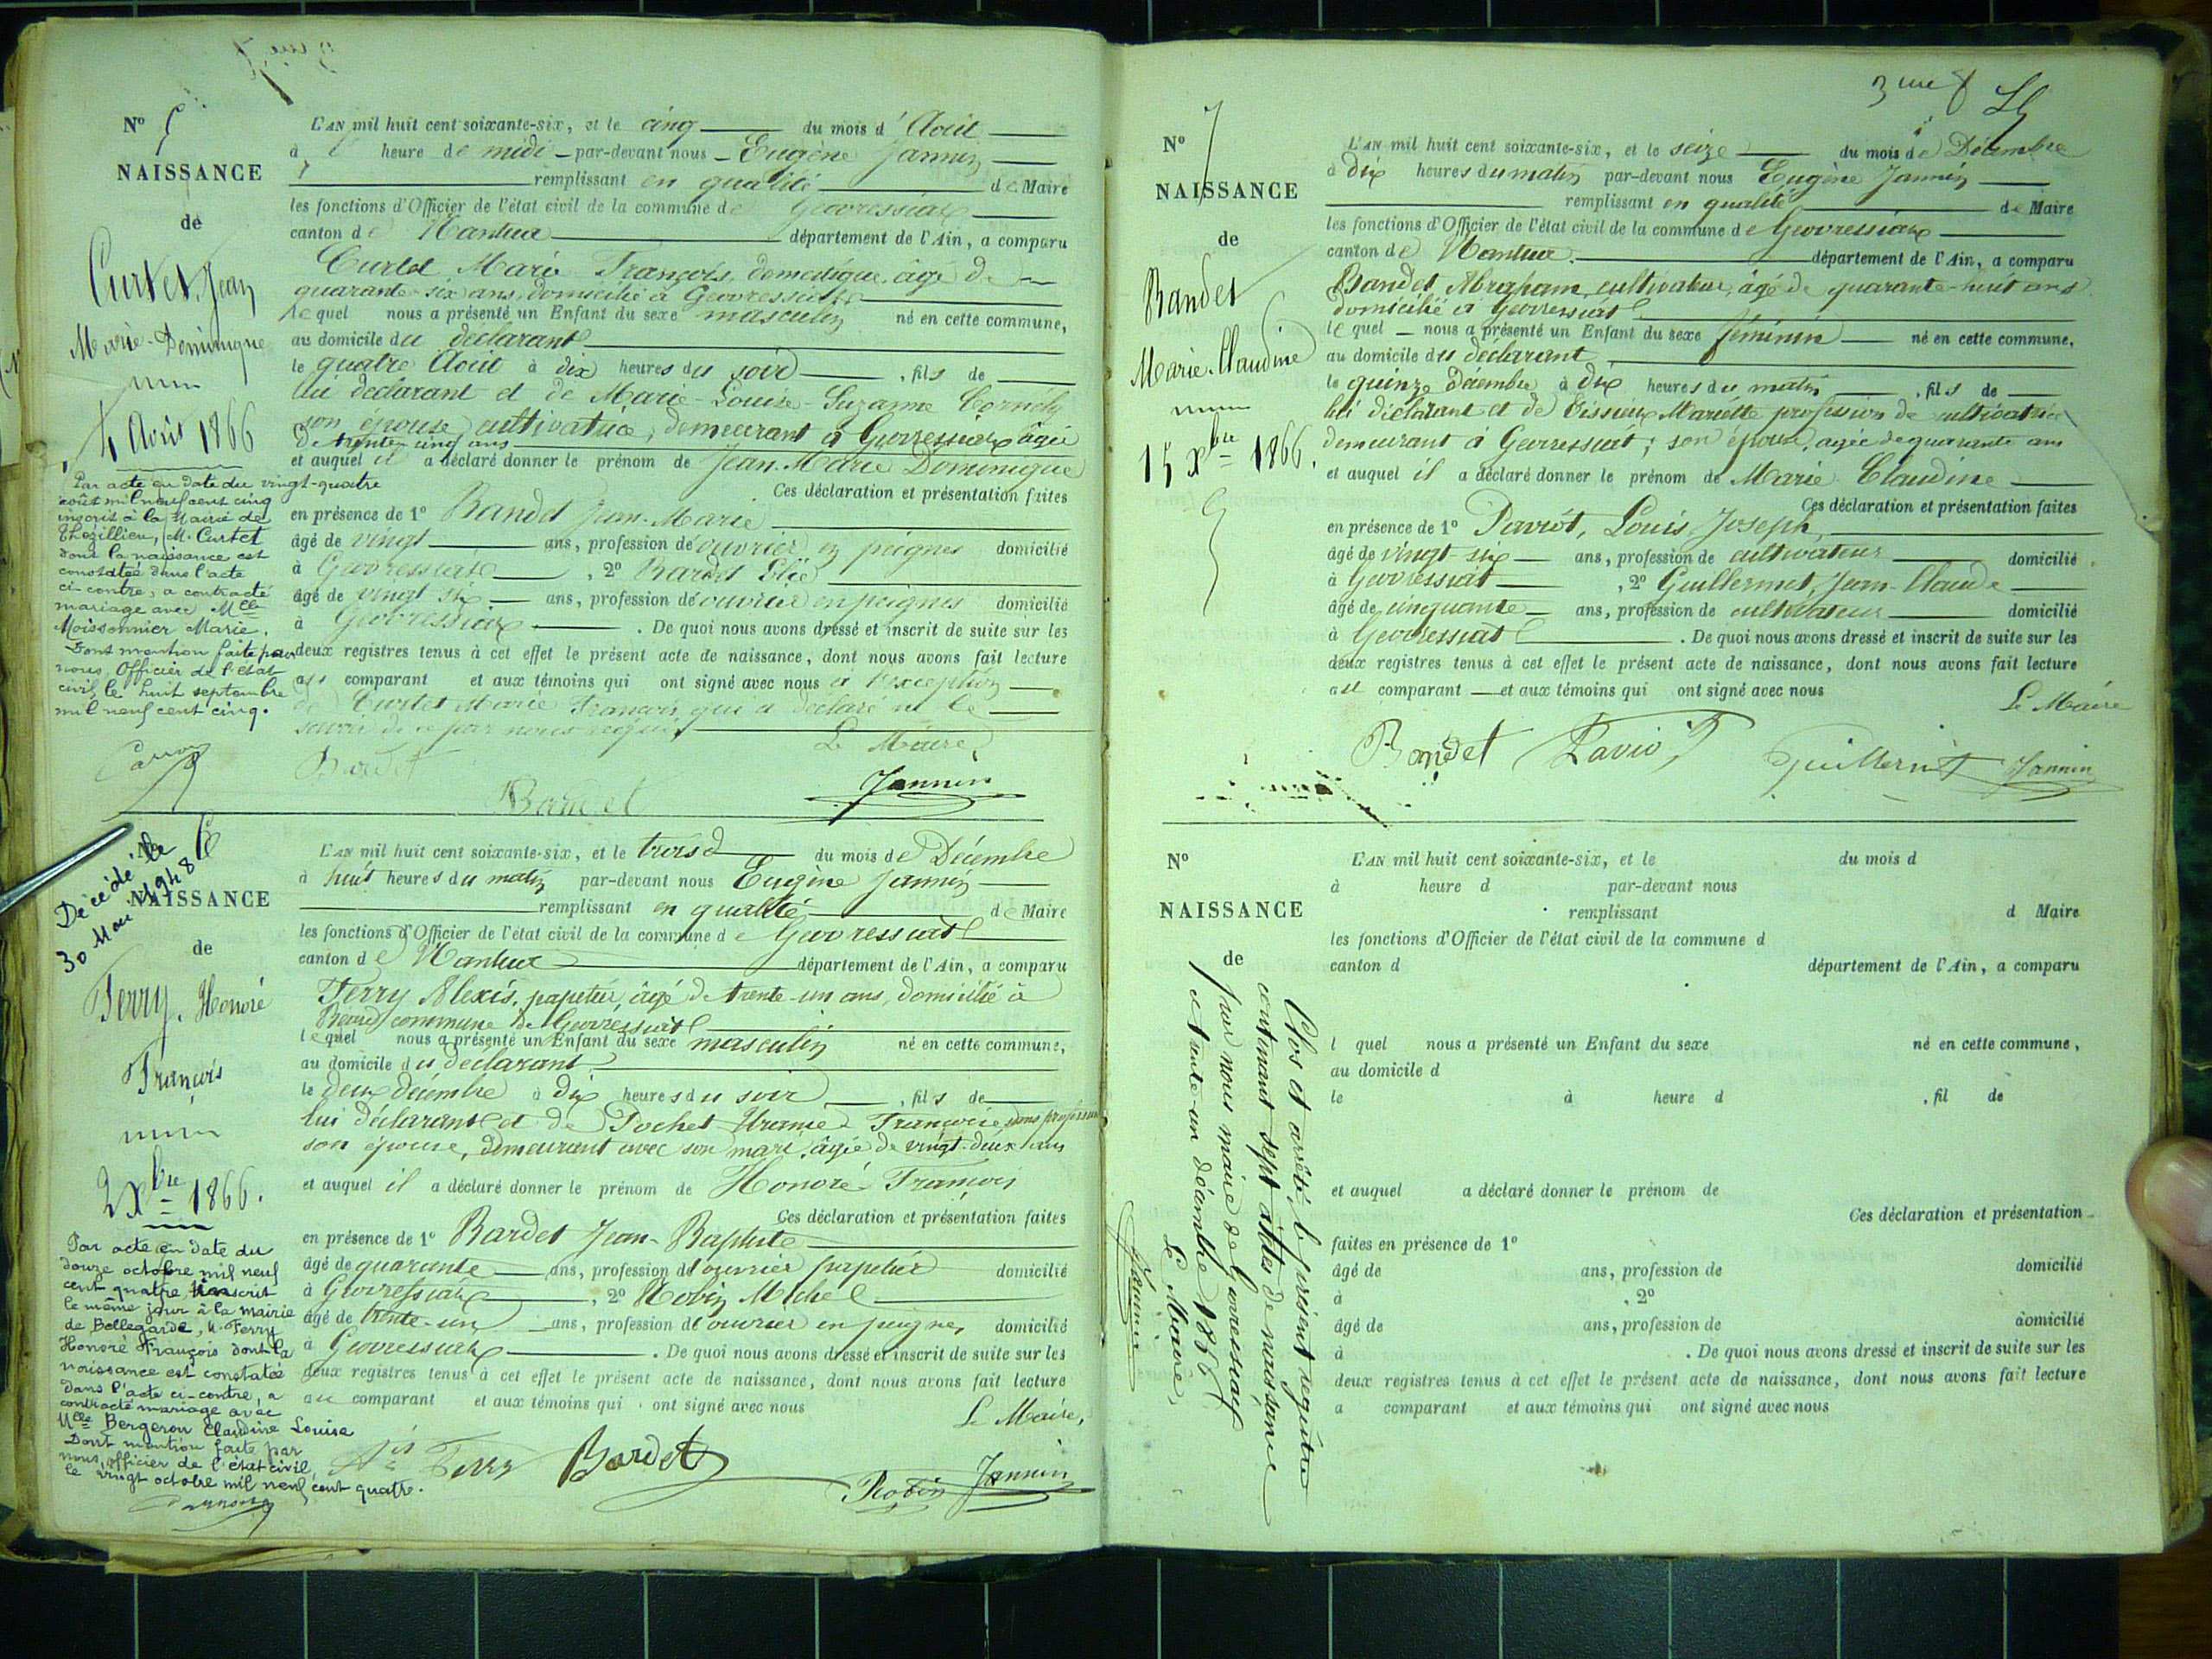 N° 5
NAISSANCE
de
Curtet, Jean
Marie-Dominique
4 Août 1866
Par acte en date du vingt-quatre
août mil neuf cent cinq
inscrit à la Mairie de
Thézillieu, M. Curtet
dont la naissance est
constatée dans l'acte
ci-contre, a contracté
mariage avec Mlle
Moissonnier Marie.
Dont mention faite par
nous, Officier de l'état
civil le huit septembre
mil neuf cent cinq.
L'AN mil huit cent soixante-six, et le cinq du mois d'Août
à heure de midi par-devant nous Eugène Jannin
remplissant en qualité de Maire
les fonctions d'Officier de l'état civil de la commune de Gevressiat
canton de Nantua département de l'Ain, a comparu
Curtet Marie François, domestique âgé de
quarante-six ans, domicilié à Gevressiat
lequel nous a présenté un Enfant du sexe masculin né en cette commune,
au domicile du déclarant
le quatre Août à dix heures du soir, fils de
lui déclarant et de Marie-Louise-Suzanne
son épouse cultivatrice, demeurant à Gevressiat âgée
de trente cinq ans
et auquel il a déclaré donner le prénom de Jean-Marie Dominique
Ces déclaration et présentation faites
en présence de 1° Bandet Jean-Marie
âgé de vingt ans, profession de ouvrier en peignes domicilié
à Gevressiat, 2° Bardet Elie
âgé de vingt six ans, profession de ouvrier en peignes domicilié
à Gevressiat. De quoi nous avons dressé et inscrit de suite sur les
deux registres tenus à cet effet le présent acte de naissance, dont nous avons fait lecture
au comparant et aux témoins qui ont signé avec nous à l'exception
de Curtet Marie François qui a déclaré ne le
savoir de ce par nous requis
Le Maire,
Bardet
Bandet
Jannin
N° 6
Décédé le
30 Mai 1948
NAISSANCE
de
Ferry, Honoré
François
2 Xbre 1866.
Par acte en date du
douze octobre mil neuf
cent quatre, inscrit
le même jour à la mairie
de Bellegarde, M. Ferry
Honoré François dont la
naissance est constatée
dans l'acte ci-contre, a
contracté mariage avec
Mlle Bergeron Claudine Louise
Dont mention faite par
nous, officier de l'état civil,
le vingt octobre mil neuf cent quatre.
L'AN mil huit cent soixante-six, et le trois du mois de Décembre
à huit heures du matin par-devant nous Eugène Jannin
remplissant en qualité de Maire
les fonctions d'Officier de l'état civil de la commune de Gevressiat
canton de Nantua département de l'Ain, a comparu
Ferry Alexis, papetier, âgé de trente-un ans, domicilié à
commune de Gevressiat
lequel nous a présenté un Enfant du sexe masculin né en cette commune,
au domicile du déclarant
le deux Décembre à dix heures du soir, fils de
lui déclarant et de Pochet Uranie Françoise sans profession
son épouse, demeurant avec son mari, âgée de vingt-deux ans
et auquel il a déclaré donner le prénom de Honoré François
Ces déclaration et présentation faites
en présence de 1° Bardet Jean-Baptiste
âgé de quarante ans, profession de ouvrier papetier domicilié
à Gevressiat, 2° Robin Michel
âgé de trente-un ans, profession de ouvrier en peignes domicilié
à Gevressiat. De quoi nous avons dressé et inscrit de suite sur les
deux registres tenus à cet effet le présent acte de naissance, dont nous avons fait lecture
au comparant et aux témoins qui ont signé avec nous
Le Maire,
Ferry Bardet Robin Jannin
3me f
N° 7
NAISSANCE
de
Bandet
Marie-Claudine
15 Xbre 1866.
L'AN mil huit cent soixante-six, et le seize du mois de Décembre
à dix heures du matin par-devant nous Eugène Jannin
remplissant en qualité de Maire
les fonctions d'Officier de l'état civil de la commune de Gevressiat
canton de Nantua département de l'Ain, a comparu
Bandet Abraham, cultivateur, âgé de quarante-huit ans
domicilié à Gevressiat
lequel nous a présenté un Enfant du sexe féminin né en cette commune,
au domicile du déclarant
le quinze décembre à dix heures du matin, fils de
lui déclarant et de Mariette profession de cultivatrice
demeurant à Gevressiat; son épouse, agée de quarante ans
et auquel il a déclaré donner le prénom de Marie Claudine
Ces déclaration et présentation faites
en présence de 1° Paviot, Louis Joseph,
âgé de vingt six ans, profession de cultivateur domicilié
à Gevressiat, 2° Guillermet, Jean-Claude
âgé de cinquante ans, profession de cultivateur domicilié
à Gevressiat. De quoi nous avons dressé et inscrit de suite sur les
deux registres tenus à cet effet le présent acte de naissance, dont nous avons fait lecture
au comparant et aux témoins qui ont signé avec nous
Le Maire
Bandet Paviot Guillermet Jannin
N°
NAISSANCE
de
L'AN mil huit cent soixante-six, et le du mois d
à heure d par-devant nous
remplissant d Maire
les fonctions d'Officier de l'état civil de la commune d
canton d département de l'Ain, a comparu
l quel nous a présenté un Enfant du sexe né en cette commune,
au domicile d
le à heure d , fil de
et auquel a déclaré donner le prénom de
Ces déclaration et présentation
faites en présence de 1°
âgé de ans, profession de domicilié
à , 2°
âgé de ans, profession de domicilié
à . De quoi nous avons dressé et inscrit de suite sur les
deux registres tenus à cet effet le présent acte de naissance, dont nous avons fait lecture
a comparant et aux témoins qui ont signé avec nous
Clos et arrêté, le présent registre
contenant sept actes de naissance
par nous maire de Gevressiat
le trente-un décembre 1866
Le Maire,
Jannin